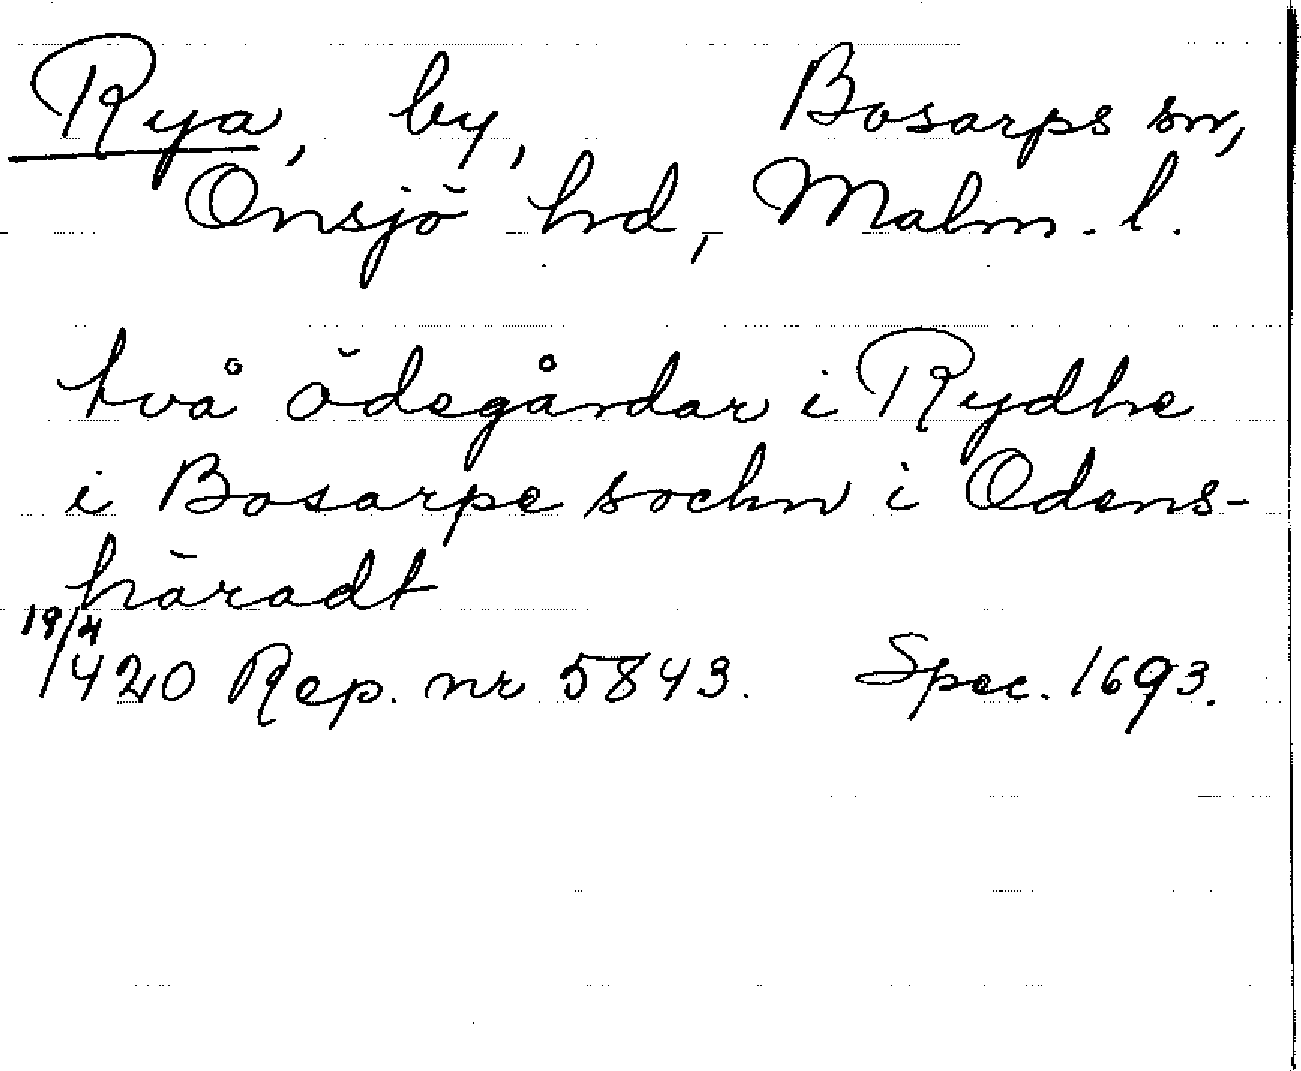 Rya, by, Bosarps sn,
Onsjö hd, Malm. l.
två ödegårdar i Rydhe
i Bosarpe sochn i Odens-
häradt
19/4 1420 Rep. nr 5843. Spec. 1693.